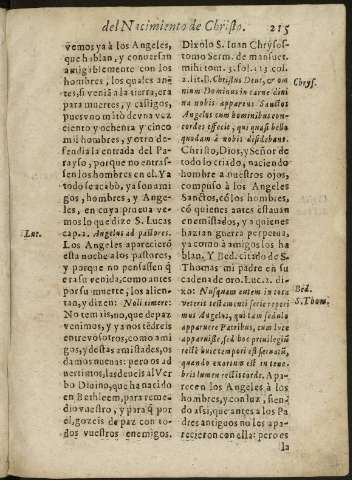 del Nacimiento de Christo. 215
vemos ya à los Angeles,
que hablan, y conversan
amigablemente con los
hombres, los quales antes,
si veniã a la tierra, era
para muertes, y castigos,
pues vno matò de vna vez
ciento y ochenta y cinco
mil hombres, y otro defendia
la entrada del Parayso,
porque no entrassen
los hombres en el. Ya
todo se acabò, ya son amigos,
hombres, y Angeles,
en cuya prueva vemos
lo que dize S. Lucas
Luc.
cap. 2. Angelus ad pastores.
Los Angeles aparecierõ
esta noche a los pastores,
y porque no pensassen q̃
era su venida, como antes
por su muerte, los alientan,
y dizen: Nolite timere:
No temais, no, que de paz
venimos, y ya nos tẽdreis
entre vosotros, como amigos,
y destas amistades, os
damos nuevas: pero os advertimos,
las deveis al Verbo
Divino, que ha nacido
en Bethleem, para remedio
vuestro, y para q̃ por
el, gozeis de paz con todos
vuestros enemigos.
Dixolo S. Iuan Chrysostomo
Serm. de mansuet.
mihi tom. 3. fol. 113. col.
Chrys.
2. lit. B. Christus Deus, & omnium
Dominus in carne divina
nobis apparens Sanctos
Angelos cum hominibus concordes
effecit, qui quasi bello
quodam à nobis dissidebant.
Christo, Dios, y Señor de
todo lo criado, naciendo
hombre a nuestros ojos,
compuso à los Angeles
Sanctos, cõ los hombres,
cõ quienes antes estauan
enemistados, y a quienes
hazian guerra perpetua,
ya como à amigos los hablan.
Y Bed. citado de S.
Thomas mi padre en su
cadena de oro. Luc. 2. dixo:
Bed.
Nusquam autem in tota
S. Thom.
veteris testamenti serie reperimus
Angelos, qui tam sedulò
apparuere Patribus, cum luce
apparuisse, sed hoc privilegiũ
rectè huic tempori est servatũ,
quando exortum est in tenebris
lumen rectis corde. Aparecen
los Angeles à los
hombres, y con luz, siendo
assi, que antes a los Padres
antiguos no les aparecieron
con ella: pero es
la